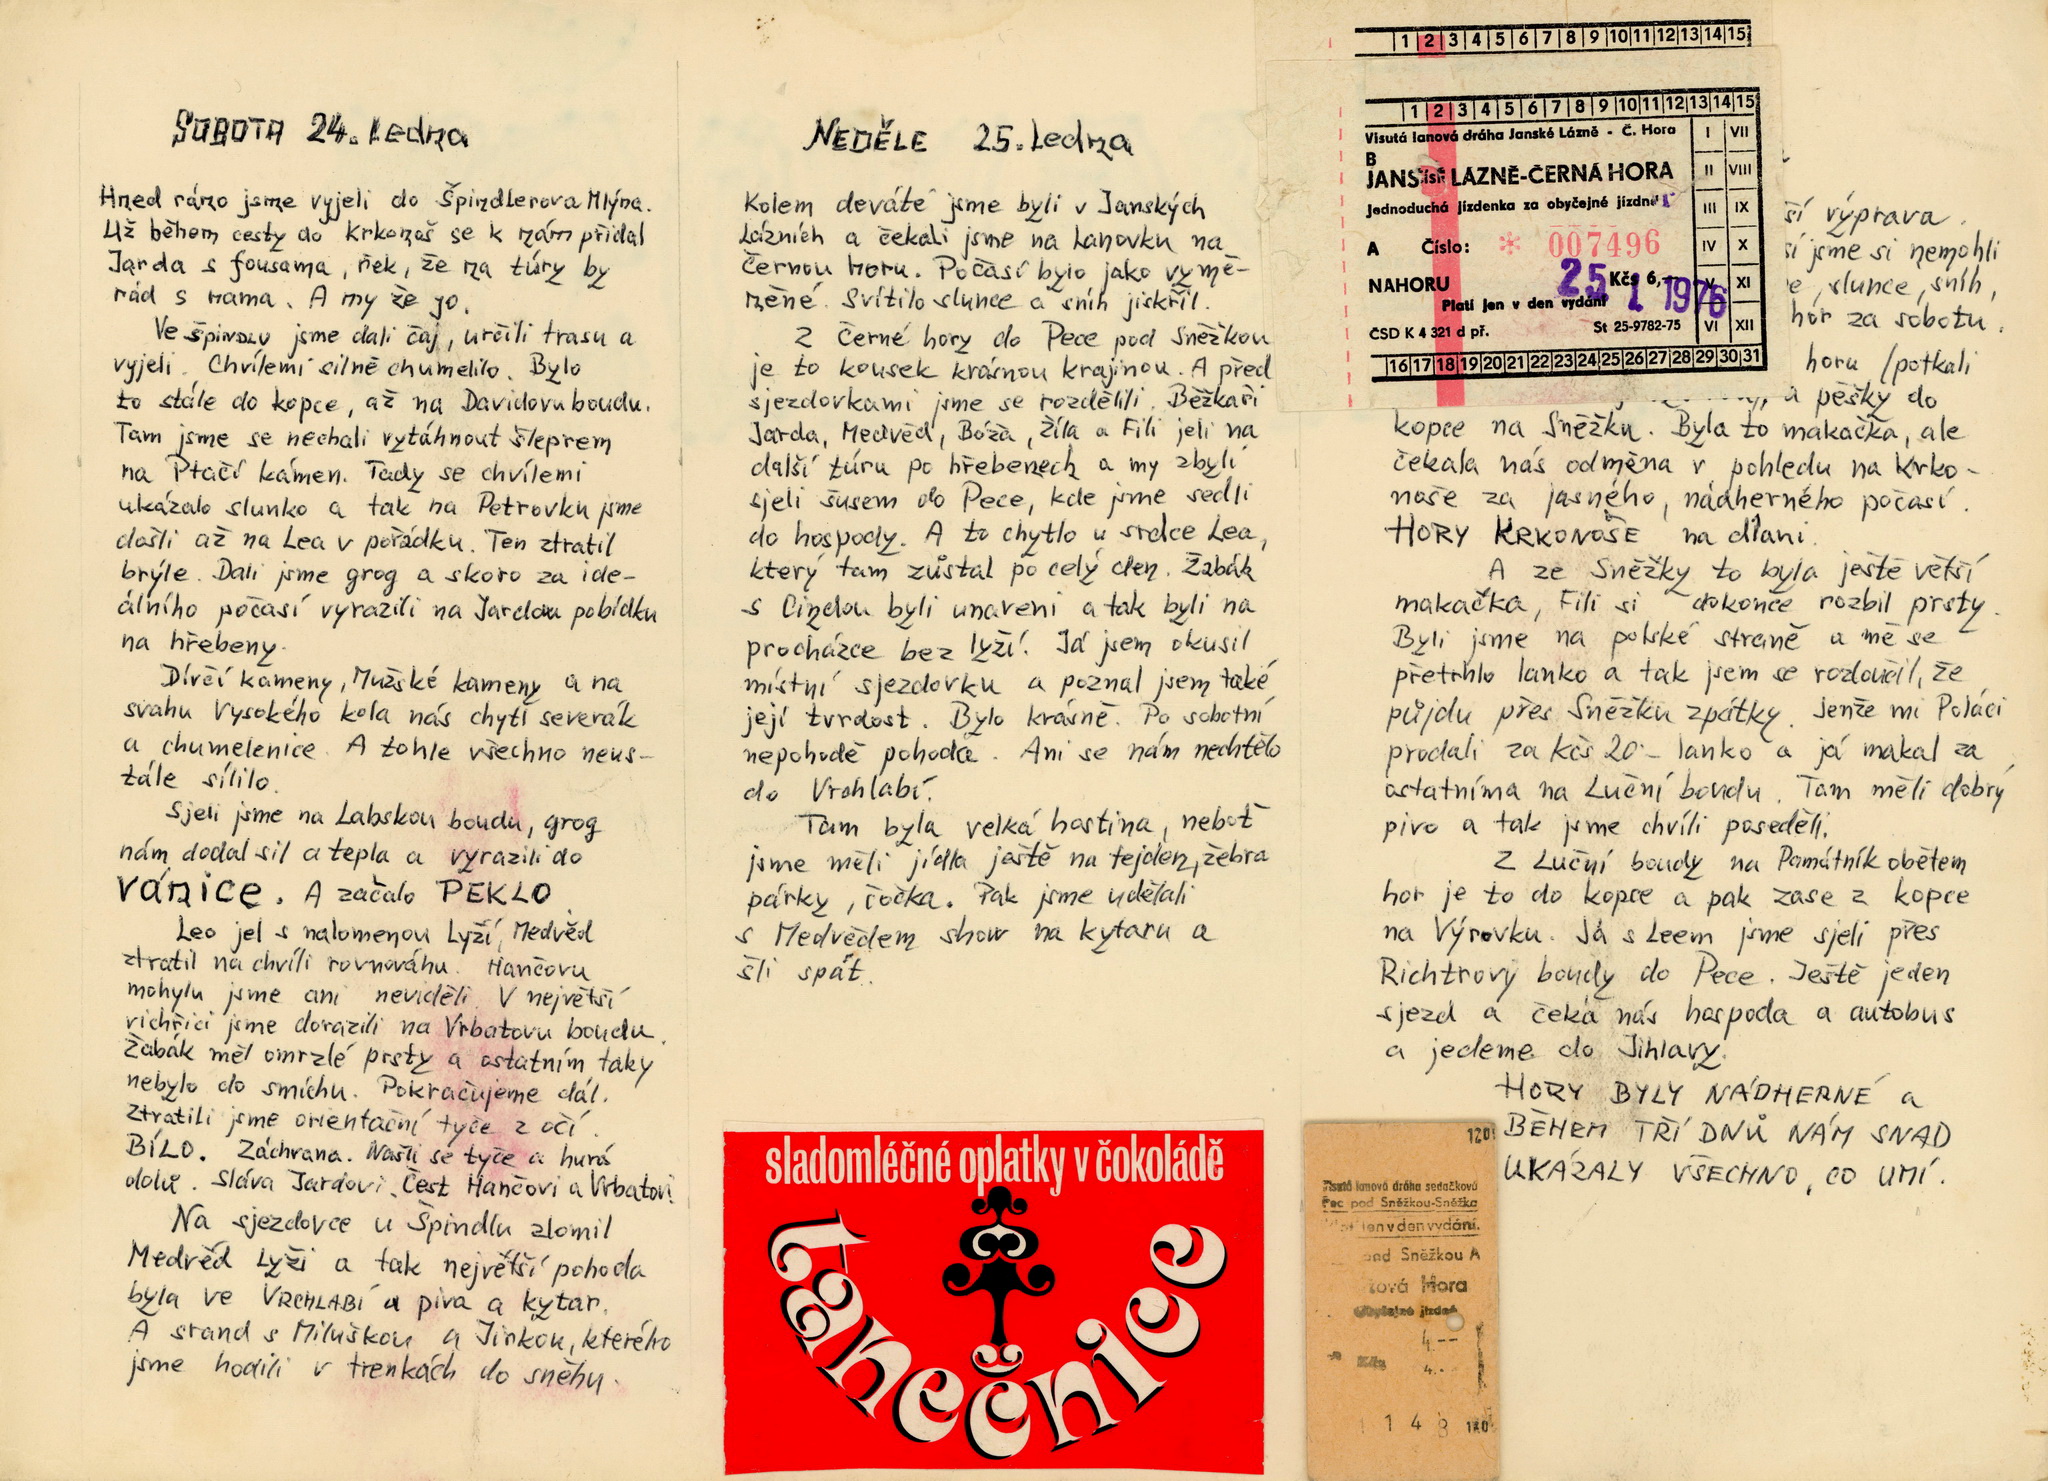 SOBOTA 24. Ledna
Hned ráno jsme vyjeli do Špindlerova Mlýna.
Už během cesty do Krkonoš se k nám přidal
Jarda s fousama, řek, že na túry by
rád s nama. A my že jo.
Ve ŠPINDLU jsme dali čaj, určili trasu a
vyjeli. Chvílemi silně chumelilo. Bylo
to stále do kopce, až na Davidovu boudu.
Tam jsme se nechali vytáhnout šleprem
na Ptačí kámen. Tady se chvílemi
ukázalo slunko a tak na Petrovku jsme
došli až na Lea v pořádku. Ten ztratil
brýle. Dali jsme grog a skoro za ide-
álního počasí vyrazili na Jardovu pobídku
na hřebeny.
Dívčí kameny, Mužské kameny a na
svahu Vysokého kola nás chytl severák
a chumelenice. A tohle všechno neus-
tále sílilo.
Sjeli jsme na Labskou boudu, grog
nám dodal sil a tepla a vyrazili do
VÁNICE. A začalo PEKLO.
Leo jel s nalomenou Lyží, Medvěd
ztratil na chvíli rovnováhu. Hančovu
mohylu jsme ani neviděli. V největší
vichřici jsme dorazili na Vrbatovu boudu.
Žabák měl omrzlé prsty a ostatním taky
nebylo do smíchu. Pokračujeme dál.
Ztratili jsme orientační tyče z očí.
BÍLO. Záchrana. Našli se tyče a hurá
dolů. Sláva Jardovi. Čest Hančovi a Vrbatovi
Na sjezdovce u Špindlu zlomil
Medvěd Lyži a tak největší pohoda
byla ve VRCHLABÍ u piva a kytar.
A srand s Miluškou a Jirkou, kterého
jsme hodili v trenkách do sněhu.
NEDĚLE 25. Ledna
Kolem deváté jsme byli v Janských
Lázních a čekali jsme na Lanovku na
Černou horu. Počasí bylo jako vymě-
něné. Svítilo slunce a sníh jiskřil.
Z Černé hory do Pece pod Sněžkou
je to kousek krásnou krajinou. A před
sjezdovkami jsme se rozdělili. Běžkaři
Jarda, Medvěd, Bóža, Žíla a Fili jeli na
další túru po hřebenech a my zbylí
sjeli šusem do Pece, kde jsme sedli
do hospody. A to chytlo u srdce Lea,
který tam zůstal po celý den. Žabák
s Cindou byli unaveni a tak byli na
procházce bez lyží. Já jsem okusil
místní sjezdovku a poznal jsem také
její tvrdost. Bylo krásně. Po sobotní
nepohodě pohoda. Ani se nám nechtělo
do Vrchlabí.
Tam byla velká hostina, neboť
jsme měli jídla ještě na tejden, žebra
párky, čočka. Pak jsme udělali
s Medvědem show na kytaru a
šli spát.
sladomléčné oplatky v čokoládě
tanečnice
1 2 3 4 5 6 7 8 9 10 11 12 13 14 15
1 2 3 4 5 6 7 8 9 10 11 12 13 14 15
Visutá lanová dráha Janské Lázně - Č. Hora
B
JANSKÉ LÁZNĚ-ČERNÁ HORA
Jednoduchá jízdenka za obyčejné jízdné
A Číslo: * 007496
NAHORU Kčs 6,-
25 I 1976
Platí jen v den vydání
ČSD K 4 321 d př. St 25-9782-75
I VII
II VIII
III IX
IV X
V XI
VI XII
16 17 18 19 20 21 22 23 24 25 26 27 28 29 30 31
ší výprava.
sí jsme si nemohli
e, slunce, sníh,
hor za sobotu.
horu (potkali
a pěšky do
kopce na Sněžku. Byla to makačka, ale
čekala nás odměna v pohledu na Krko-
noše za jasného, nádherného počasí.
HORY KRKONOŠE na dlani.
A ze Sněžky to byla ještě větší
makačka, Fili si dokonce rozbil prsty.
Byli jsme na polské straně a mě se
přetrhlo lanko a tak jsem se rozloučil, že
půjdu přes Sněžku zpátky. Jenže mi Poláci
prodali za Kčs 20.- lanko a já makal za
ostatníma na Luční boudu. Tam měli dobrý
pivo a tak jsme chvíli poseděli.
Z Luční boudy na Památník obětem
hor je to do kopce a pak zase z kopce
na Výrovku. Já s Leem jsme sjeli přes
Richtrovy boudy do Pece. Ještě jeden
sjezd a čeká nás hospoda a autobus
a jedeme do Jihlavy.
HORY BYLY NÁDHERNÉ a
BĚHEM TŘÍ DNŮ NÁM SNAD
UKÁZALY VŠECHNO, CO UMÍ.
120
Visutá lanová dráha sedačková
Pec pod Sněžkou-Sněžka
jen v den vydání.
pod Sněžkou A
zová Hora
Obyčejné jízdné
4.--
Kčs 4.--
1 1 4 8 120